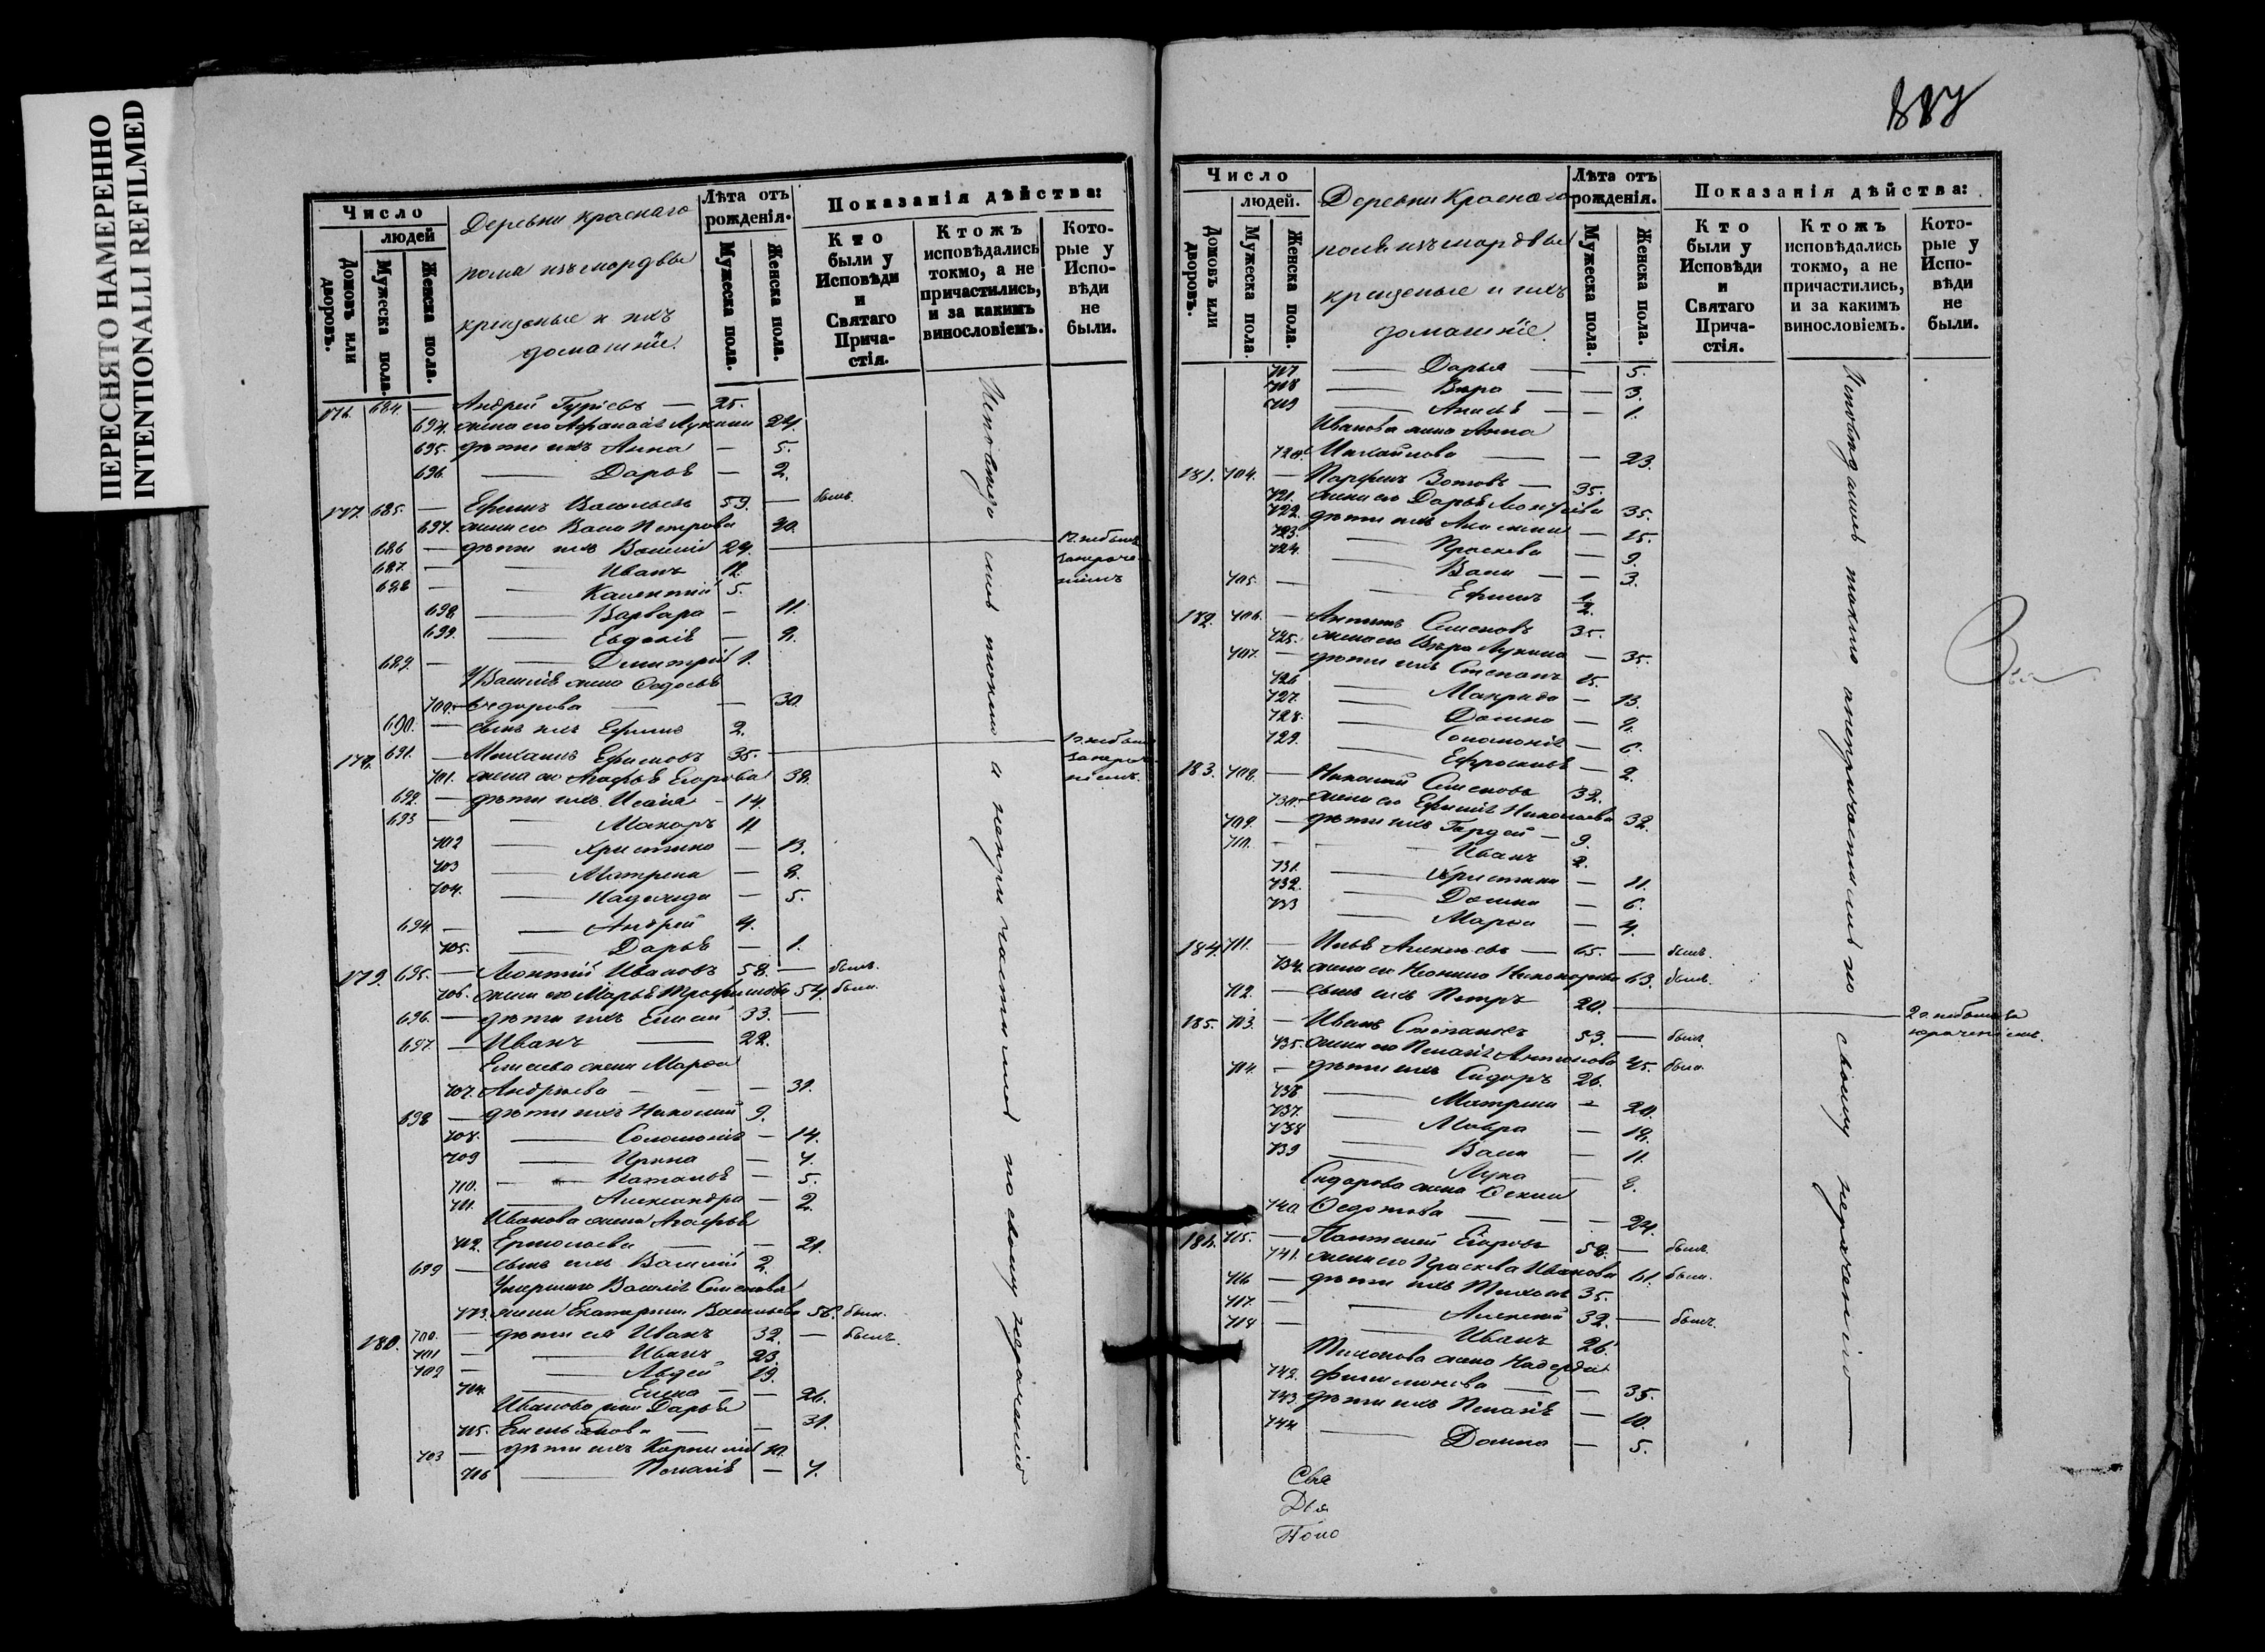 ПЕРЕСНЯТО НАМЕРЕННО
INTENTIONALLI REFILMED
Число
людей
Домовъ или дворовъ.
Мужеска пола.
Женска пола.
Деревни Краснаго
поля изъ мордвы
крещеные и ихъ
домашніе.
Лѣта отъ рожденія.
Мужеска пола.
Женска пола.
Показанія дѣйства:
Кто были у Исповѣди и Святаго Причастія.
Ктожъ исповѣдались токмо, а не причастились, и за какимъ винословіемъ.
Которые у Исповѣди не были.
176. 684. — Андрей Гурьевъ — 25.
694. жена его Лукина 24.
695. дѣти ихъ Анна — 5.
696. — Дарья — 2.
177. 685. — Ефимъ Васильевъ 59. — былъ.
697. жена его Васса Петрова
686 — дѣти ихъ Василій 24.
687. — Иванъ 12.
688 — 5.
698. — Варвара — 11.
699. — Евдокія —
689. — Димитрій 1.
Василія жена Федосья
700. Федорова — 30.
690. — сынъ ихъ Ефимъ 2.
178. 691. — Михаилъ Ефимовъ 35.
701. жена его Агафья Егорова 38.
692. — дѣти ихъ Исаія — 14.
693 — Макаръ 11
702 — Христина — 13.
703 — Матрена — 8.
704. — Надежда — 5.
694 — Андрей 4.
705. — Дарья — 1.
179. 695. — Леонтій Ивановъ 58. — былъ.
706. жена его Марья Трофимова 54. была.
696. — дѣти ихъ Елисей 33. —
697. — Иванъ — 22.
Елисеева жена Марѳа
707. Андреева — — — 31.
698 — дѣти ихъ Николай 9.
708. — Соломонія — 14.
709 — Ирина — 7.
710. — Наталья — 5.
711. — Александра — 2.
Иванова жена Агафья
712. Ермолаева — 21.
699 — сынъ ихъ Василій 2.
Умершаго Василія Семенова
713. жена Екатерина Васильева 56. была.
180. 700. — дѣти ея Иванъ 32. — былъ.
701 — Иванъ 23.
702 — Авдей 19.
714. — Елена — — 26.
Иванова жена Дарья
715. Емельянова — — 31.
703 — дѣти ихъ Корнилій 10.
716 — Пелагія — 7.
Исповѣдались токмо а непричастились по своему нераченію
887
Число
людей.
Домовъ или дворовъ.
Мужеска пола.
Женска пола.
Деревни Краснаго
поля изъ мордвы
крещеные и ихъ
домашніе.
Лѣта отъ рожденія.
Мужеска пола.
Женска пола.
Показанія дѣйства:
Кто были у Исповѣди и Святаго Причастія.
Ктожъ исповѣдались токмо, а не причастились, и за какимъ винословіемъ.
Которые у Исповѣди не были.
717 — Дарья — 5.
718 — Вѣра — 3.
719 — — 1.
Иванова жена Анна
720. Михайлова — — 23.
181. 704. — Парфенъ Зотовъ — 35.
721. жена его Дарья 35.
722. дѣти ихъ — 15.
723. — Прасковья — 9.
724. — Васса — — 3.
705. — Ефимъ 1/2.
182. 706. — Антипъ Семеновъ 35.
725. жена его Вѣра Лукина — 35.
707. — дѣти ихъ Степанъ 15.
726 — Макрида — 13.
727. — Домна — 9.
728. — Соломонія — 6.
729. — Ефросинья — 2.
183. 708. — Николай Семеновъ 32.
730. жена его Ефимія Николаева 32.
709. — дѣти ихъ Гордей — 9.
710. — Иванъ 2.
731. — Христина — 11.
732. — Домна — 6.
733 — Марѳа — 4.
184. 711. — Илья Алексѣевъ — 65. — былъ.
734. жена его Никанорова 63. была.
712. — сынъ ихъ Петръ 20.
185. 713. — Иванъ Степановъ 53. — былъ.
735. жена его Пелагія Антонова 45. была.
714. — дѣти ихъ Сидоръ 26.
736 — Матрена — 20.
737. — Мавра — 18.
738 — Васса — 11.
739 — — 8.
Сидорова жена Ксенія
740 Федотова — — — 24.
186. 715. — Пантелей Егоровъ 58. — былъ.
741. жена его Прасковья Иванова 61. была.
716 — дѣти ихъ Тихонъ 35.
717. — Алексей 32. — былъ.
718 — Иванъ 26.
Тихонова жена Надежда
742. Филимонова — — 35.
743 дѣти ихъ Пелагія — 10.
744 — Домна — 5.
Исповѣдались токмо анепричастились по своему нераченію
Свя
Дья
Поно